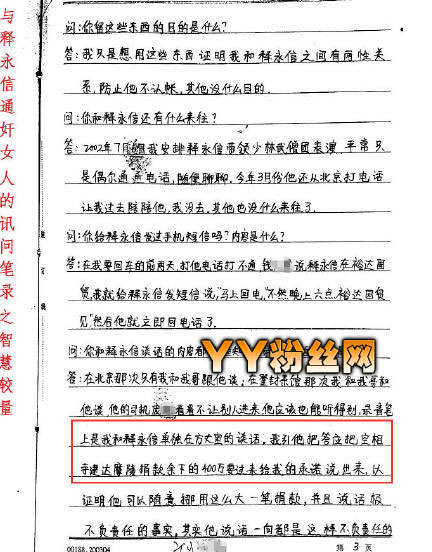 与释永信通奸女人的讯问笔录之智慧较量
问:你留这些东西的目的是什么?
答:我只是想用这些东西证明我和释永信之间有两性关
系,防止他不认帐,其他没什么目的.
问:你和释永信还有什么来往?
答:2002年7月 我安排释永信带领少林武僧团表演.平常只
是偶尔通通电话,随便聊聊,今年3月份他还从北京打电话
让我过去陪陪他,我没去,其他也没什么来往了.
问:你给释永信发过手机短信吗?内容是什么?
答:在我要回车的前两天,打他电话打不通, 说,释永信在裕达国
贸,我就给释永信发短信说,"马上回电,不然,晚上六点裕达国贸
见"然后他就立即回电话了.
问:你和释永信谈话的内容都
YY粉丝网
答:在北京那次只有我和我哥跟他谈,在 那次我和我哥和
他谈 他的司机 看着不让别人进来他应该也能听得到.录音笔
上是我和释永信单独在方丈室的谈话,我引他把答应把空相
寺建达摩陵捐款余下的400万要过来给我的承诺说出来,以
证明他可以随意挪用这么大一笔捐款,并且说话极
不负责任的事实,其实他说话一向都是这样不负责任的
00188.200304
第 3 页